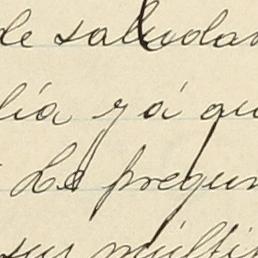 de saludar
lía y á qu
Le pregun
sus múlti